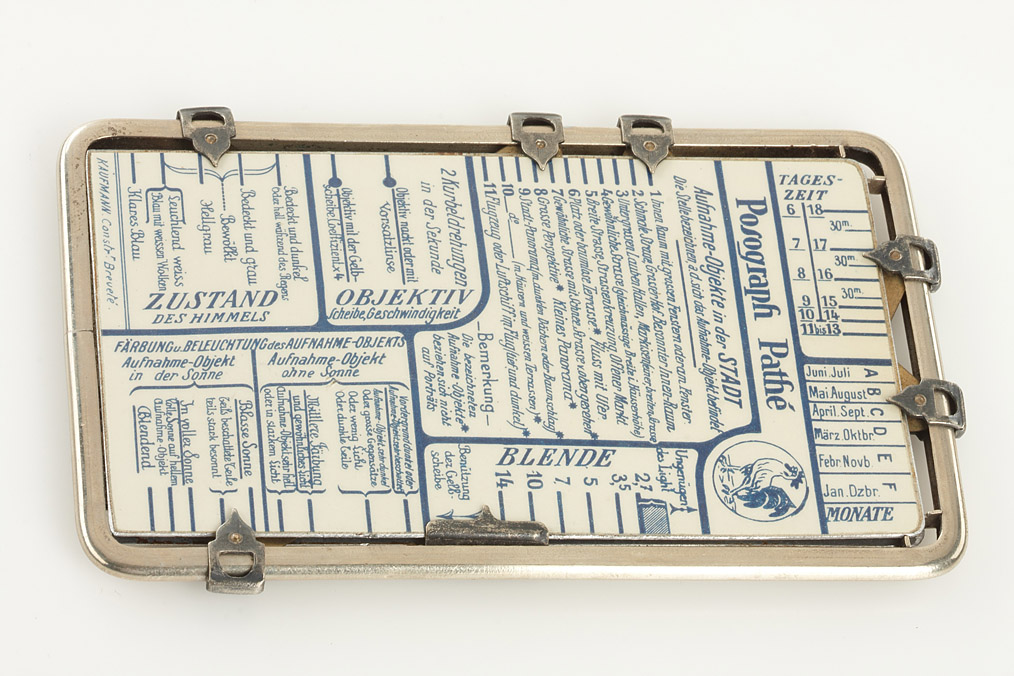 TAGES-
ZEIT
6 18
30m
7 17
30m
8 16
30m
9 15
10 14
11 bis 13
A Juni.Juli
B Mai.August
C April.Sept.
D März.Oktbr
E Febr.Novb
F Jan.Dzbr.
MONATE
Posograph Pathé
Aufnahme-Objekte in der STADT
Die Stelle bezeichnen, à d. sich das Aufnahme-Objekt befindet
1 Innen Raum mit grossen Fenstern oder am Fenster
3 Unterrassen, Lauben, Hallen,
5 Breite Strasse, Strassenkreuzung, Offener Markt.
6 Platz oder baumlose Terrasse* Fluss mit Ufer
7 Gewöhnliche Strasse mit Schnee, Strasse v. oben gesehen*
8 Grosse Perspektive* Kleines Panorama*
9 Stadt-Panorama (m. dunklen Dächern oder Baumschlag)*
10 do (m. Häusern und weissen Terrassen)*
11 Flugzeug oder Luftschiff (im Flug hell und dunkel)*
2 Kurbeldrehungen
in der Sekunde
Bemerkung
Die bezeichneten
Aufnahme-Objekte*
beziehen sich nicht
auf Porträts
OBJEKTIV
Scheibe, Geschwindigkeit
Objektiv nackt oder mit
Vorsatzlinse
Objektiv mit der Gelb-
scheibe (Coeffizient x 4
ZUSTAND
DES HIMMELS
Bedeckt und dunkel
oder hell während des Regens
Bedeckt und grau
Bewölkt
Hellgrau
Leuchtend weiss
Blau mit weissen Wolken
Klares Blau
KAUFMANN Constr Breveté.
FÄRBUNG u. BELEUCHTUNG des AUFNAHME-OBJEKTS
Aufnahme-Objekt
in der Sonne
Aufnahme-Objekt
ohne Sonne
Blasse Sonne
teils stark besonnt
In voller Sonne
Volle Sonne auf hellem
Aufnahme Objekt
Blendend
Oder grosse Gegensätze
Oder wenig Licht
Oder dunkle Seite
Mittlere Färbung
und gewöhnliches Licht
Aufnahme-Objekt sehr hell
oder in starkem Licht
BLENDE
Ungenügen-
des Licht
2,7
3,5
5
7
10
14
Benützung
der Gelb-
scheibe